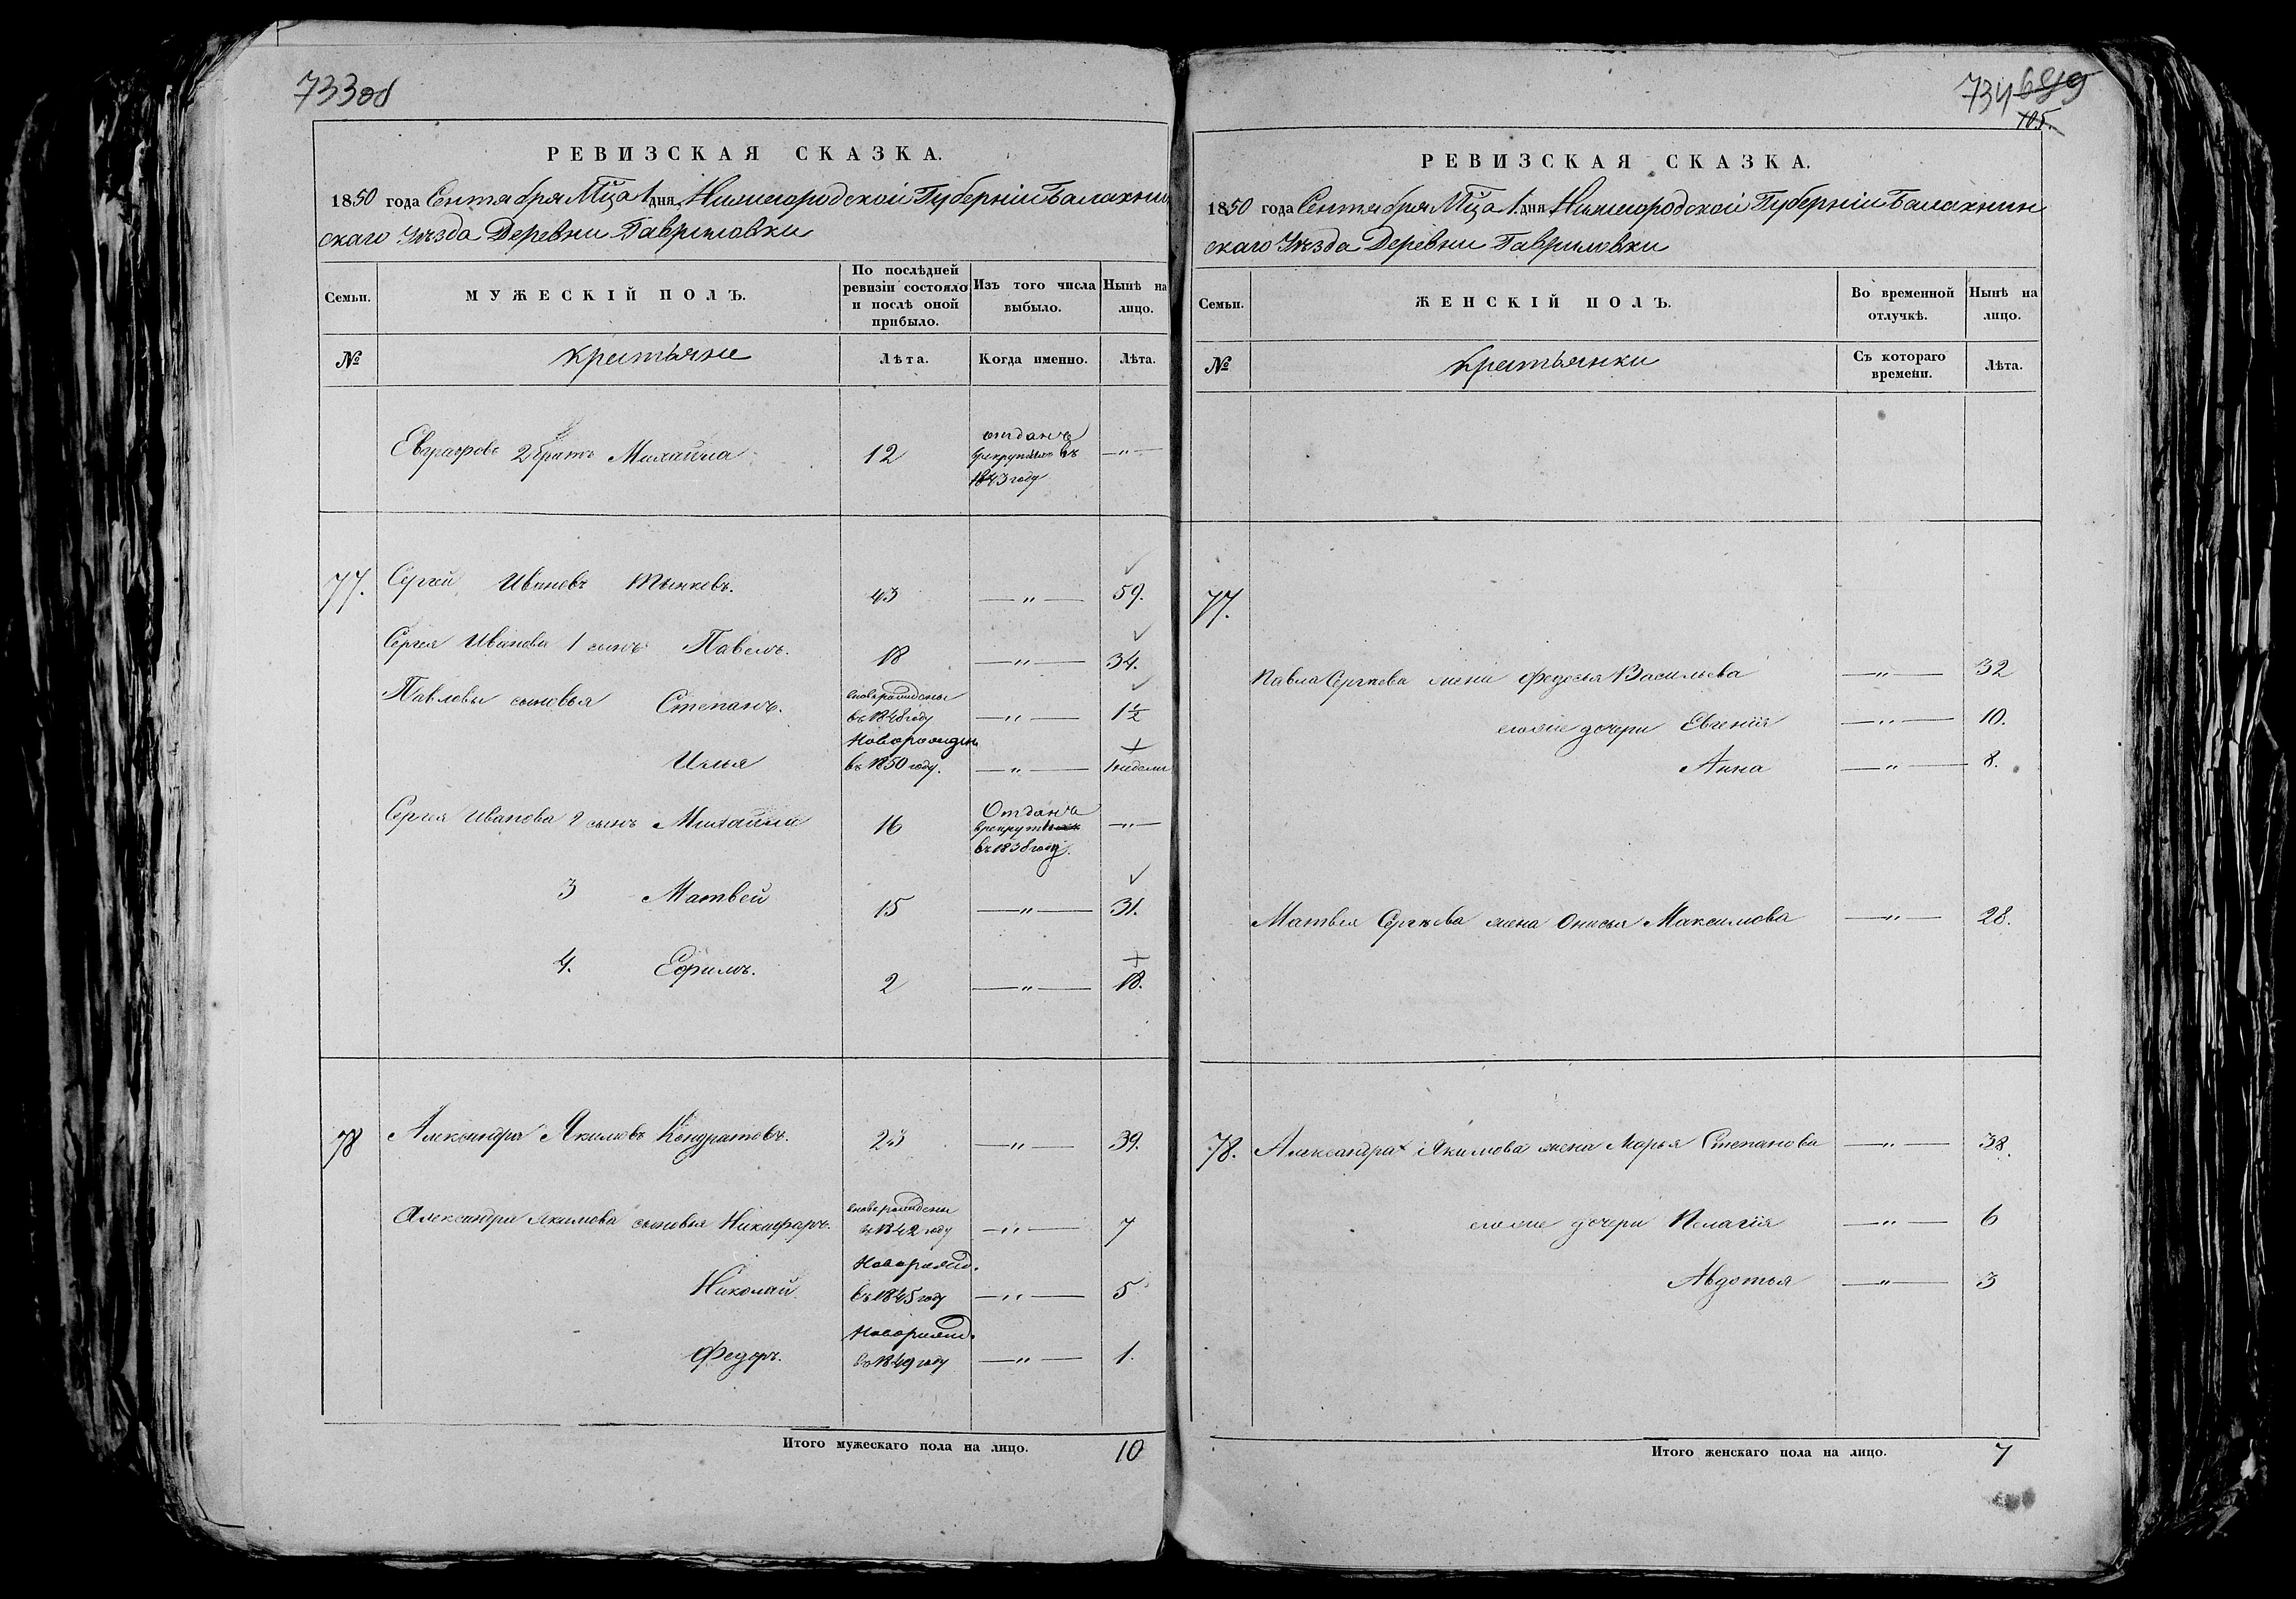 733об
РЕВИЗСКАЯ СКАЗКА.
1850 года Сентября Мца 1 дня Нижегородской Губерніи Балахнин
скаго Уѣзда Деревни Гавриловки
Семьи.
МУЖЕСКІЙ ПОЛЪ.
По послѣдней ревизіи состояло и послѣ оной прибыло.
Изъ того числа выбыло.
Нынѣ на лицо.
№
крестьяне
Лѣта.
Когда именно.
Лѣта.
Евграфовъ 2 братъ Михайла 12 отданъ
врекруты въ
1843 году
77. Сергей Ивановъ 43 — " — 59.
Сергея Иванова 1 сынъ Павелъ. 18 — " — 34.
Павловы сыновья Степанъ. новорожденъ
въ 1848 году — " — 1½
Илья Новорожден
въ 1850 году. — " — 1 недели
Сергея Иванова 2 сынъ Михайла 16 Отданъ
врекруты
въ 1838 году. — " —
3 Матвей 15 — " — 31.
4. Ефимъ. 2 — " — 18.
78 Александра Якимовъ Кондратовъ. 23 — " — 39.
Александра Якимова сыновья Никифоръ. новорожденъ
в 1842 году — " — 7
Николай Новорожд.
въ 1845 году — " — 5
Федоръ. Новорожд.
въ 1849 году — " — 1.
Итого мужескаго пола на лицо. 10
734 689
105.
РЕВИЗСКАЯ СКАЗКА.
1850 года Сентября Мца 1. дня Нижегородской Губерніи Балахнин
скаго Уѣзда Деревни Гавриловки
Семьи.
ЖЕНСКІЙ ПОЛЪ.
Во временной отлучкѣ.
Нынѣ на лицо.
№
крестьянки
Съ котораго времени.
Лѣта.
77.
Павла Сергѣева жена Федосья Васильева — " — 32
дочери Евгенія — " — 10.
Анна — " — 8.
Матвея Сергѣева жена Онисья Максимова — " — 28.
78. Александра Якимова жена Марья Степанова — " — 38.
дочери Пелагія — " — 6
Авдотья — " — 3
Итого женскаго пола на лицо. 7